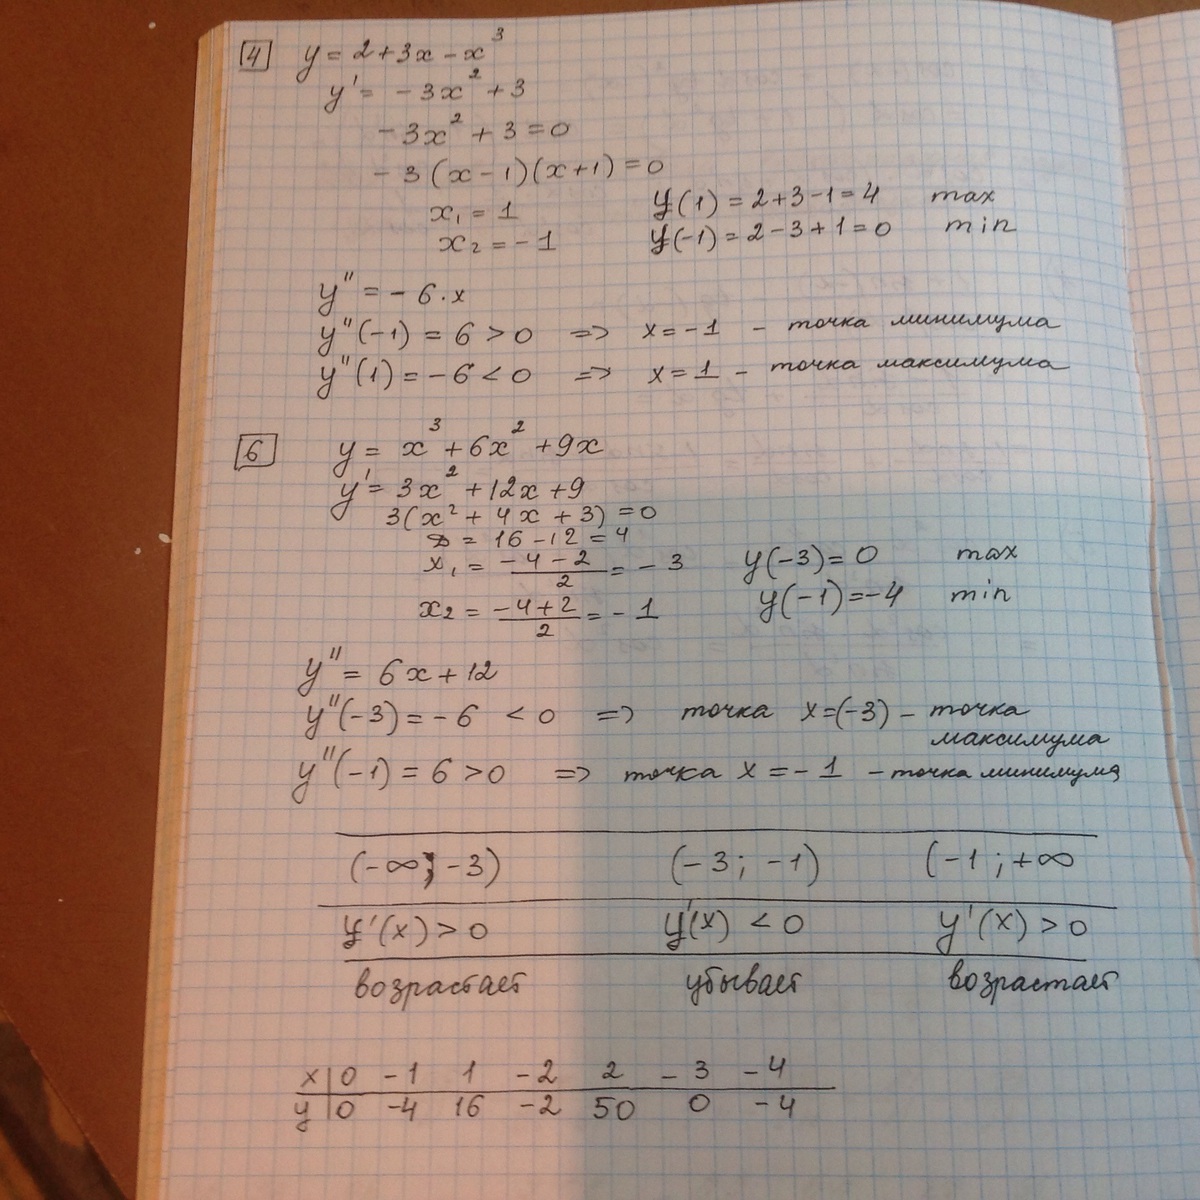 4 y = 2 + 3x - x³
y' = - 3x² + 3
- 3x² + 3 = 0
- 3 (x - 1)(x + 1) = 0
x₁ = 1 y(1) = 2 + 3 - 1 = 4 max
x₂ = - 1 y(-1) = 2 - 3 + 1 = 0 min
y'' = - 6 · x
y''(-1) = 6 > 0 => x = - 1 - точка минимума
y''(1) = - 6 < 0 => x = 1 - точка максимума
6 y = x³ + 6x² + 9x
y' = 3x² + 12x + 9
3(x² + 4x + 3) = 0
D = 16 - 12 = 4
x₁ = (-4 - 2)/2 = - 3 y(-3) = 0 max
x₂ = (-4 + 2)/2 = - 1 y(-1) = -4 min
y'' = 6x + 12
y''(-3) = - 6 < 0 => точка x = (-3) - точка
максимума
y''(-1) = 6 > 0 => точка x = - 1 - точка минимума
(-∞; -3) (-3; -1) (-1; +∞
y'(x) > 0 y'(x) < 0 y'(x) > 0
возрастает убывает возрастает
x | 0 -1 1 -2 2 -3 -4
y | 0 -4 16 -2 50 0 -4